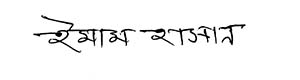 ইমাম হাসান